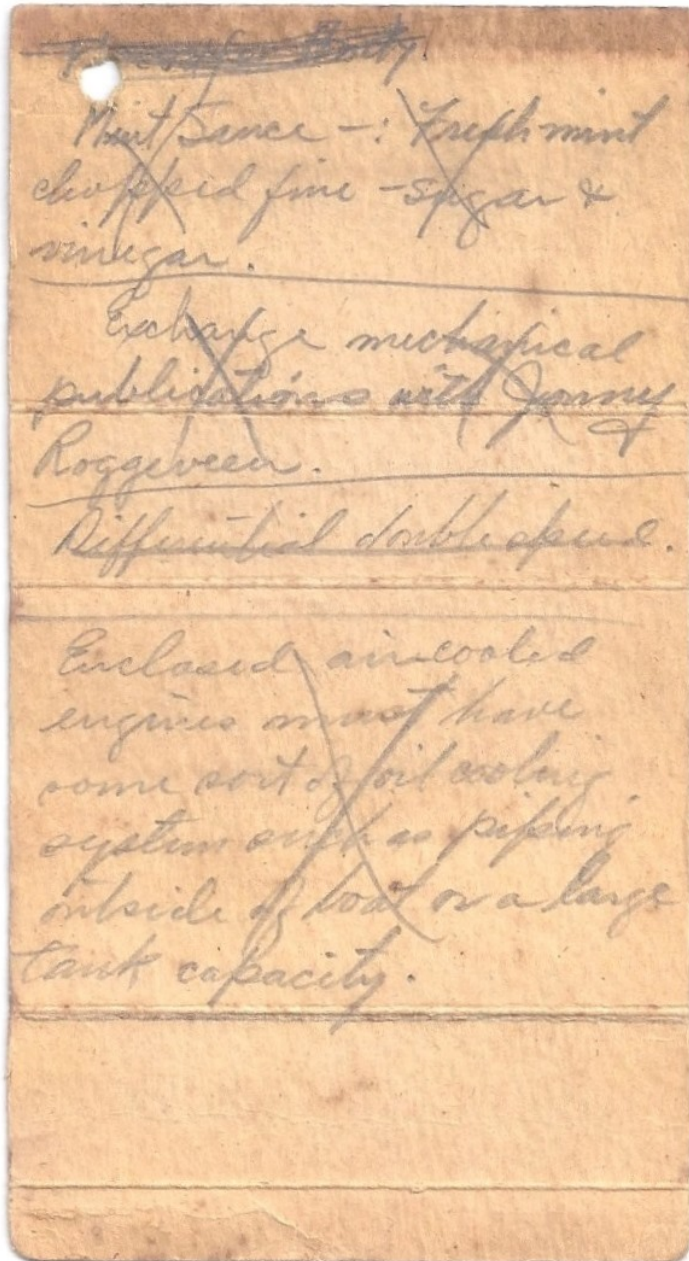 Mint Sauce -: Fresh mint
chopped fine - sugar &
vinegar.
Exchange mechanical
publications with Jonny
Roggeveen.
Differential double speed.
Enclosed air-cooled
engines must have
some sort of oil cooling
system such as piping
outside of boat or a large
tank capacity.